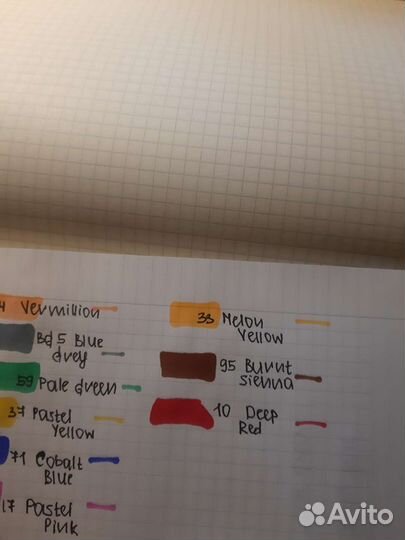 4 Vermillion
Bd5 Blue
drey
59 Pale dreen
37 Pastel
Yellow
71 Cobalt
Blue
17 Pastel
Pink
33 Melon
Yellow
95 Burnt
sienna
10 Deep
Red
Avito